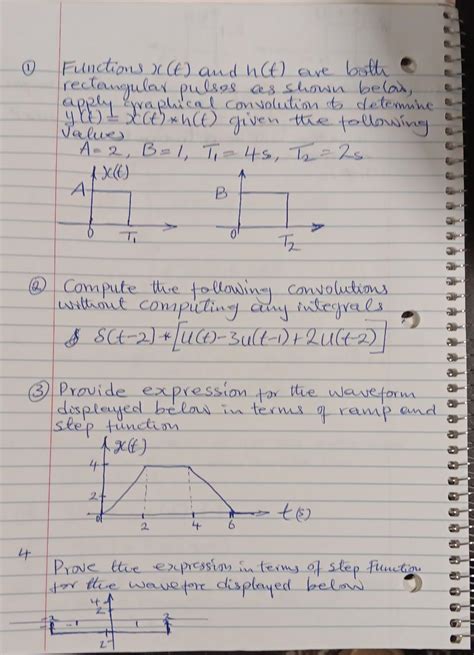 ① Functions x(t) and h(t) are both
rectangular pulses as shown below,
apply graphical convolution to determine
y(t) = x(t) * h(t) given the following
values
A = 2, B = 1, T₁ = 4s, T₂ = 2s
x(t)
A
B
0
T₁
0
T₂
② Compute the following convolutions
without computing any integrals
δ(t-2) * [u(t) - 3u(t-1) + 2u(t-2)]
③ Provide expression for the waveform
displayed below in terms of ramp and
step function
x(t)
4
2
0
2
4
6
t(s)
4
Prove the expression in terms of step function
for the wavefore displayed below
4
2
-1
1
2
2-